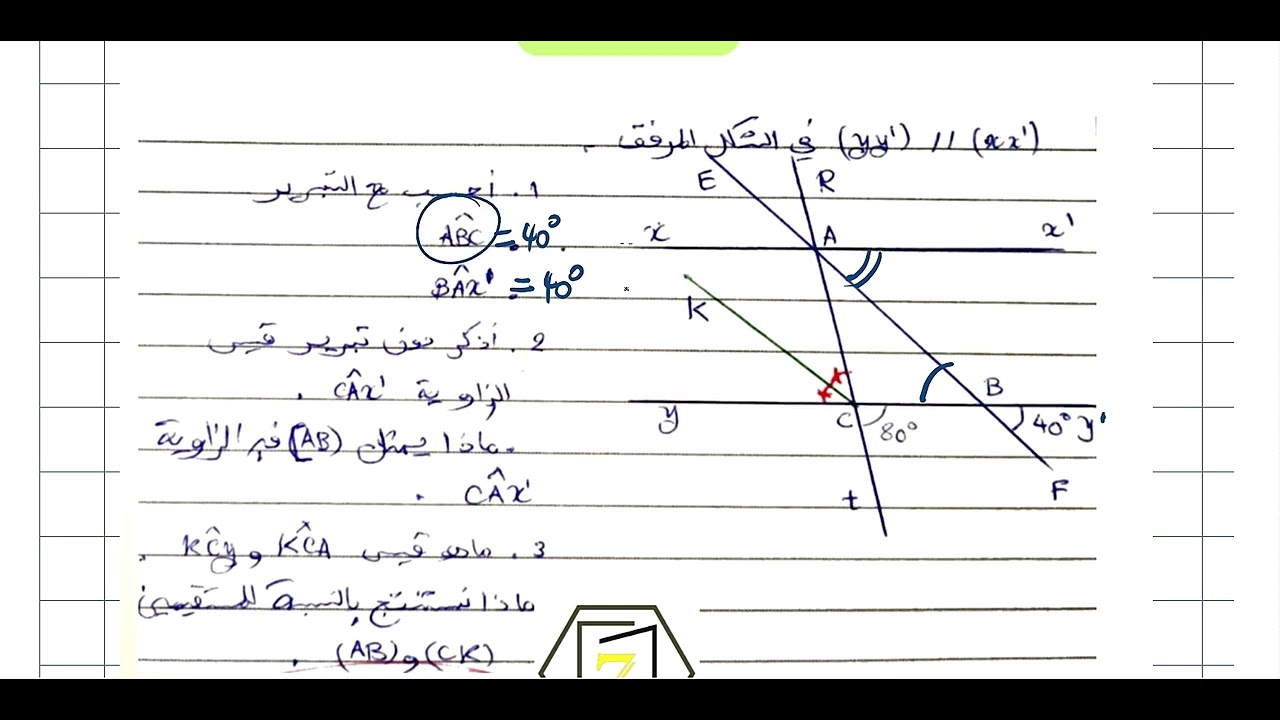 في الشكل المرفق (yy') // (xx') .
1. أحسب مع التبرير
ABC = 40° .
BAx' = 40°
2. أذكر دون تبرير قيس
الزاوية CAx' .
. ماذا يمثل [AB) في الزاوية
CAx' .
3. ما هو قيس KCA و KCy .
ماذا نستنتج بالنسبة للمستقيمين
(CK) و (AB) .
E
R
x
A
x'
K
B
y
C
80°
40°
y'
t
F
7